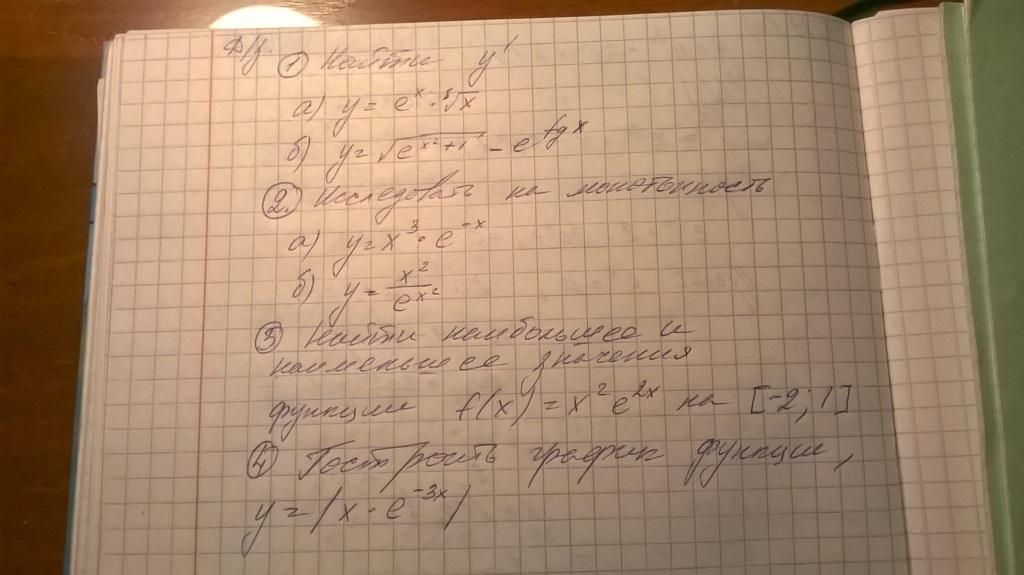 Д/з. ① Найти y'
а) y = e^x · ⁵√x
б) y = √(e^(x²+1)) - e^(tg x)
② Исследовать на монотонность
а) y = x³ · e^(-x)
б) y = x² / e^(x²)
③ Найти наибольшее и
наименьшее значения
функции f(x) = x² e^(2x) на [-2; 1]
④ Построить график функции,
y = |x · e^(-3x)|